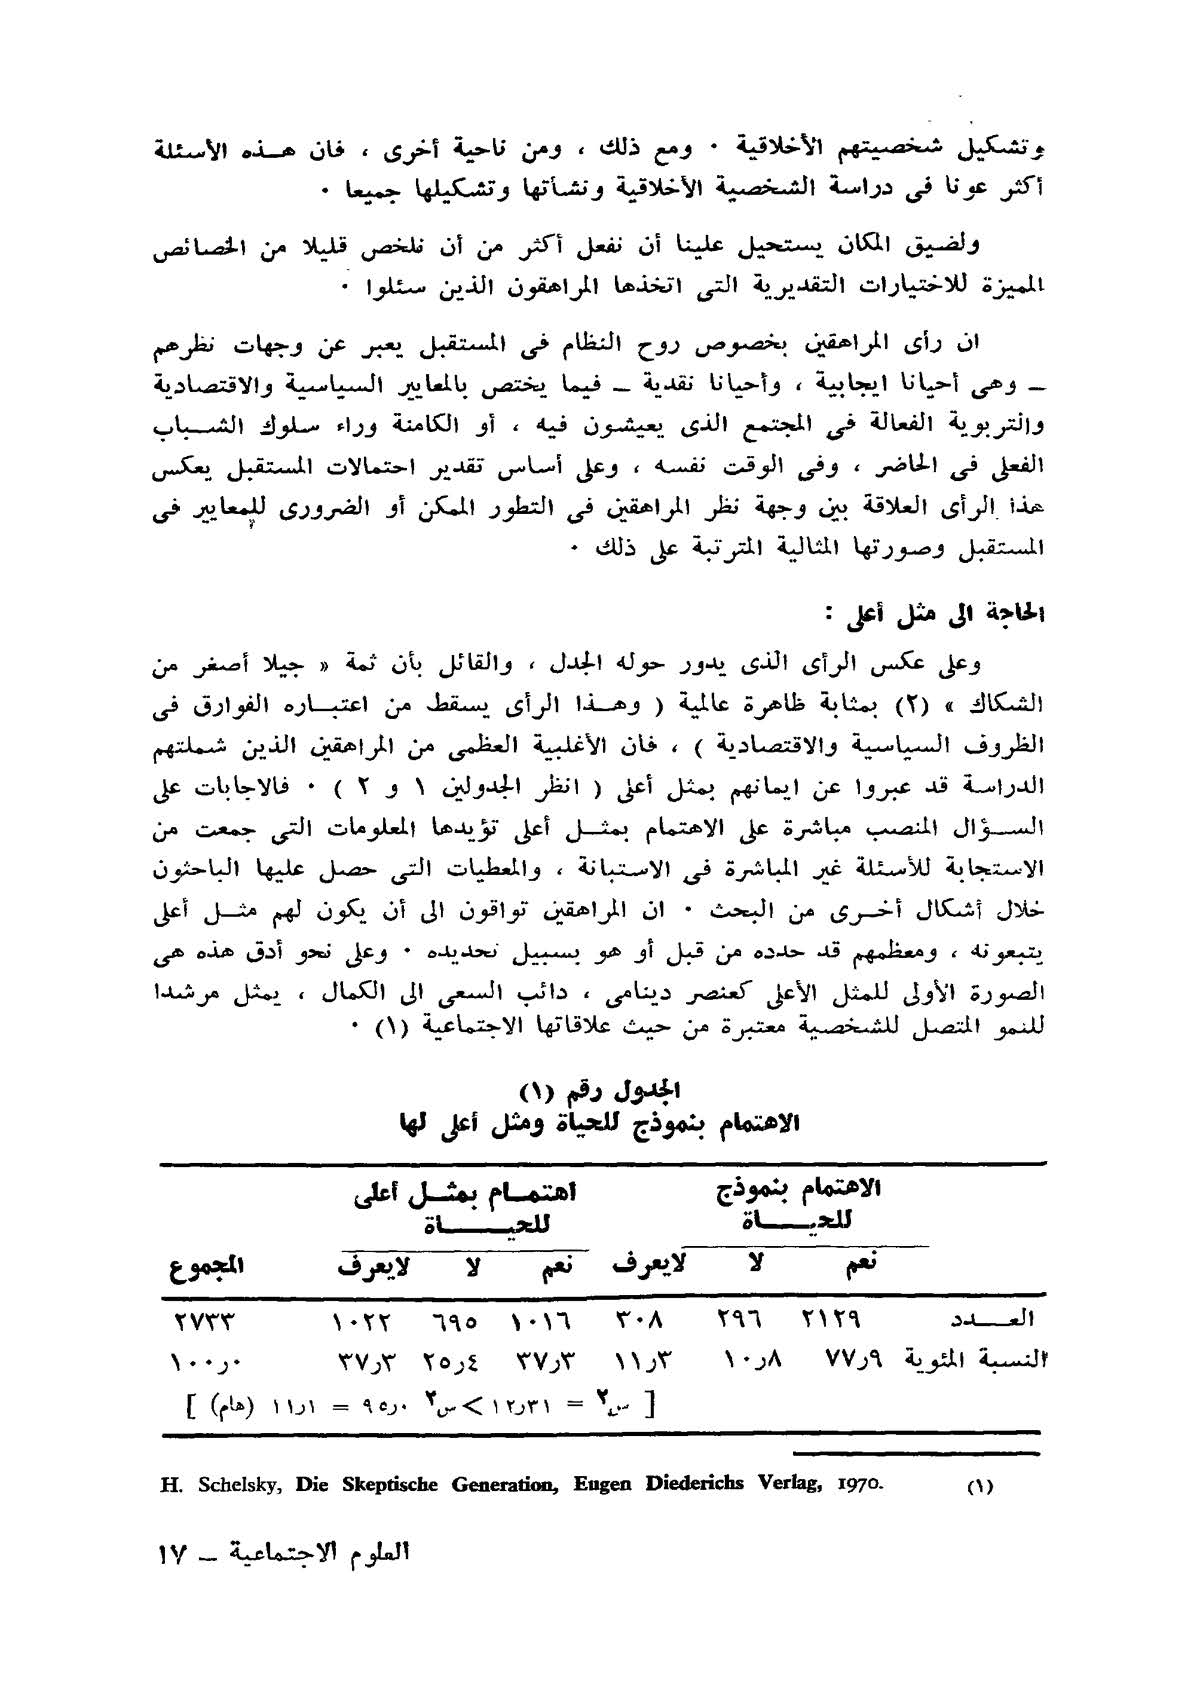 وتشكيل شخصيتهم الأخلاقية ٠ ومع ذلك ، ومن ناحية أخرى ، فان هــذه الأسئلة
أكثر عونا فى دراسة الشخصية الأخلاقية ونشأتها وتشكيلها جميعا ٠
ولضيق المكان يستحيل علينا أن نفعل أكثر من أن نلخص قليلا من الخصائص
المميزة للاختيارات التقديرية التى اتخذها المراهقون الذين سئلوا ٠
ان رأى المراهقين بخصوص روح النظام فى المستقبل يعبر عن وجهات نظرهم
ــ وهى أحيانا ايجابية ، وأحيانا نقدية ــ فيما يختص بالمعايير السياسية والاقتصادية
والتربوية الفعالة فى المجتمع الذى يعيشون فيه ، أو الكامنة وراء سلوك الشــباب
الفعلى فى الحاضر ، وفى الوقت نفسه ، وعلى أساس تقدير احتمالات المستقبل يعكس
هذا الرأى العلاقة بين وجهة نظر المراهقين فى التطور الممكن أو الضرورى للمعايير فى
المستقبل وصورتها المثالية المترتبة على ذلك ٠
الحاجة الى مثل أعلى :
وعلى عكس الرأى الذى يدور حوله الجدل ، والقائل بأن ثمة « جيلا أصغر من
الشكاك » (٢) بمثابة ظاهرة عالمية ( وهــذا الرأى يسقط من اعتبــاره الفوارق فى
الظروف السياسية والاقتصادية ) ، فان الأغلبية العظمى من المراهقين الذين شملتهم
الدراسة قد عبروا عن ايمانهم بمثل أعلى ( انظر الجدولين ١ و ٢ ) ٠ فالاجابات على
الســؤال المنصب مباشرة على الاهتمام بمثــل أعلى تؤيدها المعلومات التى جمعت من
الاستجابة للأسئلة غير المباشرة فى الاستبانة ، والمعطيات التى حصل عليها الباحثون
خلال أشكال أخــرى من البحث ٠ ان المراهقين تواقون الى أن يكون لهم مثــل أعلى
يتبعونه ، ومعظمهم قد حدده من قبل أو هو بسبيل تحديده ٠ وعلى نحو أدق هذه هى
الصورة الأولى للمثل الأعلى كعنصر دينامى ، دائب السعى الى الكمال ، يمثل مرشدا
للنمو المتصل للشخصية معتبرة من حيث علاقاتها الاجتماعية (١) ٠
الجدول رقم (١)
الاهتمام بنموذج للحياة ومثل أعلى لها
الاهتمام بنموذج اهتمــام بمثــل أعلى
للحيــــاة للحيــــــاة
نعم لا لايعرف نعم لا لايعرف المجموع
العــــدد ٢١٢٩ ٢٩٦ ٣٠٨ ١٠١٦ ٦٩٥ ١٠٢٢ ٢٧٣٣
النسبة المئوية ٧٧٫٩ ١٠٫٨ ١١٫٣ ٣٧٫٣ ٢٥٫٤ ٣٧٫٣ ١٠٠٫٠
[ س٢ = ١٢٫٣١ > س٢ ٩٥٫٠ = ١١٫١ (هام) ]
(١) H. Schelsky, Die Skeptische Generation, Eugen Diederichs Verlag, 1970.
العلوم الاجتماعية ــ ١٧